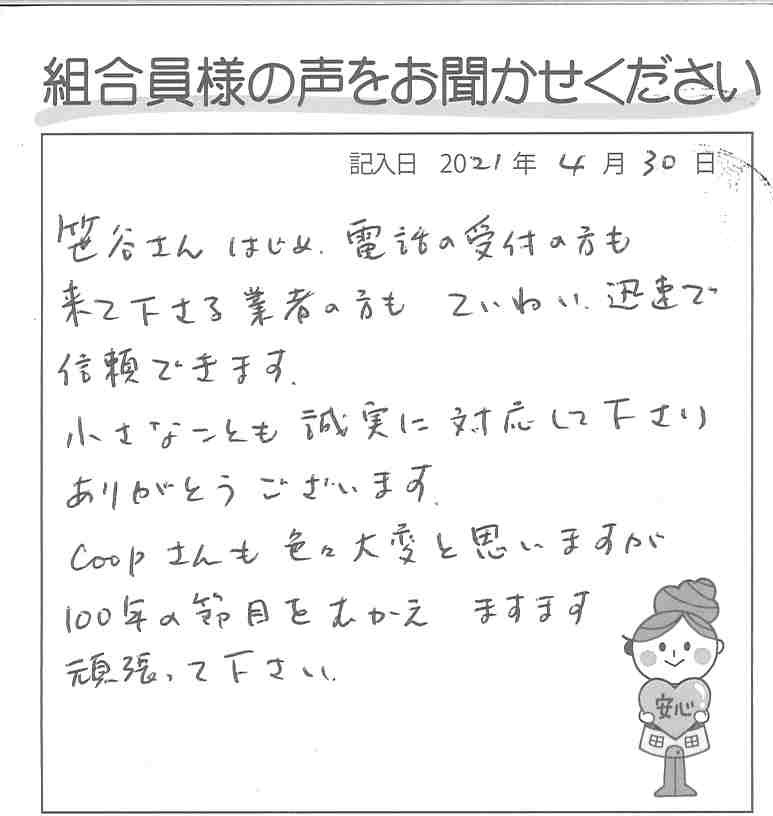 組合員様の声をお聞かせください
記入日 2021年 4月 30日
笹谷さん はじめ、電話の受付の方も
来て下さる業者の方も ていねい、迅速で
信頼できます。
小さなことも誠実に対応して下さり
ありがとうございます。
Coopさんも色々大変と思いますが
100年の節目をむかえ ますます
頑張って下さい。
安心